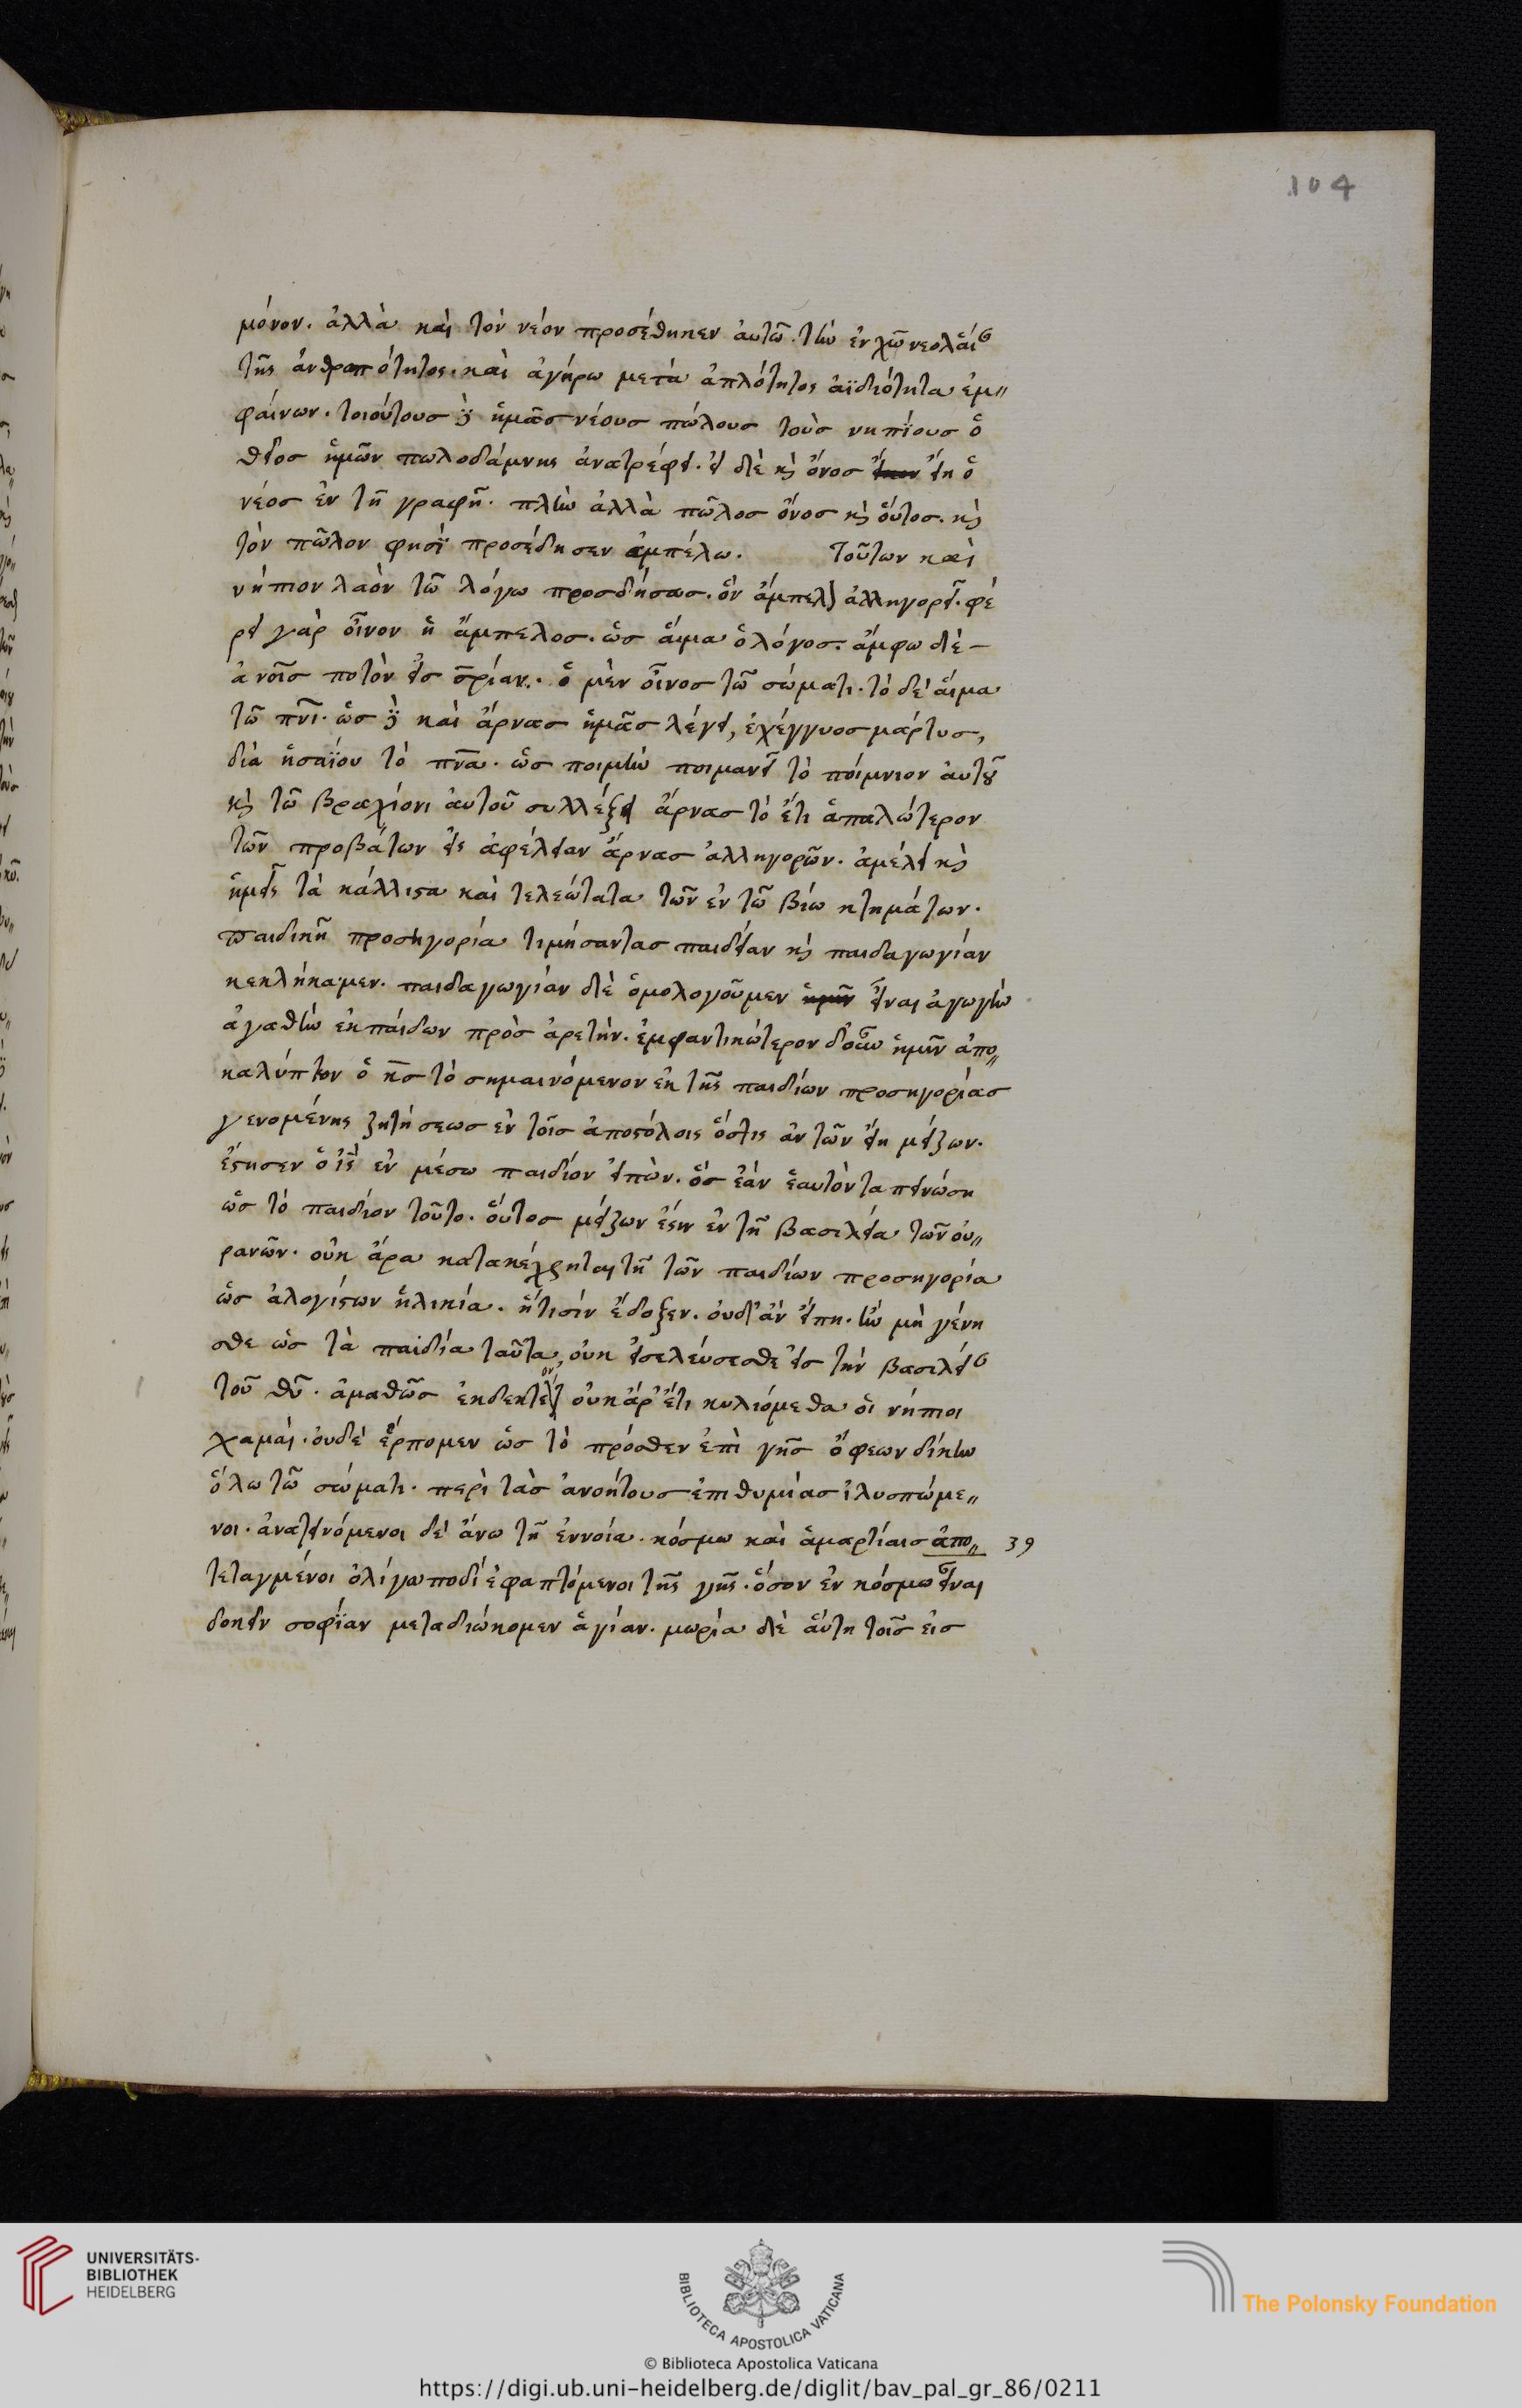 104
μόνον. ἀλλὰ καὶ τὸν νέον προσέθηκεν ἀυτῶ. τὴν ἐν χω νεολαίαν
τῆς ἀνθρωπότητος. καὶ ἀγήρω μετὰ ἁπλότητος ἀϊδιότητα ἐμ〃
φαίνων. τοιούτους δὲ ἡμᾶς νέους πώλους τοὺς νηπίους ὁ
θεῖος ἡμῶν πωλοδάμνης ἀνατρέφει. εἰ δὲ κὶ ὄνος εἴη ὁ
νέος ἐν τῆ γραφῆ. πλὴν ἀλλὰ πῶλος ὄνος κὶ οὗτος. κὶ
τὸν πῶλον φησὶ προσέδησεν ἀμπέλω. τοῦτον καὶ
νήπιον λαὸν τῶ λόγω προσδήσας. ὃν ἄμπελον ἀλληγορεῖ. φέ
ρει γὰρ οἶνον ἡ ἄμπελος. ὡς αἷμα ὁ λόγος. ἄμφω δὲ —
ἀνοῖς ποτὸν εἰς σρίαν. ὁ μὲν οἶνος τῶ σώματι. τὸ δὲ αἷμα
τῶ πνι. ὡς δὲ καὶ ἄρνας ἡμᾶς λέγει, ἐχέγγυος μάρτυς,
διὰ ἡσαΐου τὸ πνα. ὡς ποιμὴν ποιμανεῖ τὸ ποίμνιον ἀυτοῦ
κὶ τῶ βραχίονι ἀυτοῦ συλλέξει ἄρνας τὸ ἔτι ἁπαλώτερον
τῶν προβάτων εἰς ἀφέλειαν ἄρνας ἀλληγορῶν. ἀμέλει κὶ
ἡμεῖς τὰ κάλλιστα καὶ τελεώτατα τῶν ἐν τῶ βίω κτημάτων.
παιδικῆ προσηγορία τιμήσαντας παιδείαν κὶ παιδαγωγίαν
κεκλήκαμεν. παιδαγωγίαν δὲ ὁμολογοῦμεν εἶναι ἀγωγὴν
ἀγαθὴν ἐκ παίδων πρὸς ἀρετήν. ἐμφαντικώτερον δ' οὖν ἡμῖν ἀπο〃
καλύπτων ὁ κς τὸ σημαινόμενον ἐκ τῆς παιδίων προσηγορίας
γενομένης ζητήσεως ἐν τοῖς ἀποστόλοις ὅστις ἀν τῶν εἴη μείζων.
ἔστησεν ὁ ις ἐν μέσω παιδίον εἰπὼν. ὃς ἐὰν ἑαυτὸν ταπεινώση
ὡς τὸ παιδίον τοῦτο. οὗτος μείζων ἐστιν ἐν τῆ βασιλεία τῶν οὐ〃
ρανῶν. οὐκ ἄρα κατακέχρηται τῆ τῶν παιδίων προσηγορία
ὡς ἀλογίστων ἡλικία. ἥ τισὶν ἔδοξεν. οὐδ' ἀν εἴπη. ἢν μὴ γένη
σθε ὡς τὰ παιδία ταῦτα, οὐκ εἰσελεύσεσθε εἰς τὴν βασιλείαν
τοῦ θυ. ἀμαθῶς ἐκδεκτέον οὐκ ἄρ' ἔτι κυλιόμεθα οἱ νήπιοι
χαμαὶ. οὐδὲ ἕρπομεν ὡς τὸ πρόσθεν ἐπὶ γῆς ὄφεων δίκην
ὅλω τῶ σώματι. περὶ τὰς ἀνοήτους ἐπιθυμίας ἰλυσπώμε〃
νοι. ἀνατεινόμενοι δὲ ἄνω τῆ ἐννοία. κόσμω καὶ ἁμαρτίαις ἀπο〃 39
τεταγμένοι ὀλίγω ποδὶ ἐφαπτόμενοι τῆς γῆς. ὅσον ἐν κόσμω εἶναι
δοκεῖν σοφίαν μεταδιώκομεν ἁγίαν. μωρία δὲ αὕτη τοῖς εἰς
UNIVERSITÄTS-
BIBLIOTHEK
HEIDELBERG
BIBLIOTECA APOSTOLICA VATICANA
The Polonsky Foundation
© Biblioteca Apostolica Vaticana
https://digi.ub.uni-heidelberg.de/diglit/bav_pal_gr_86/0211